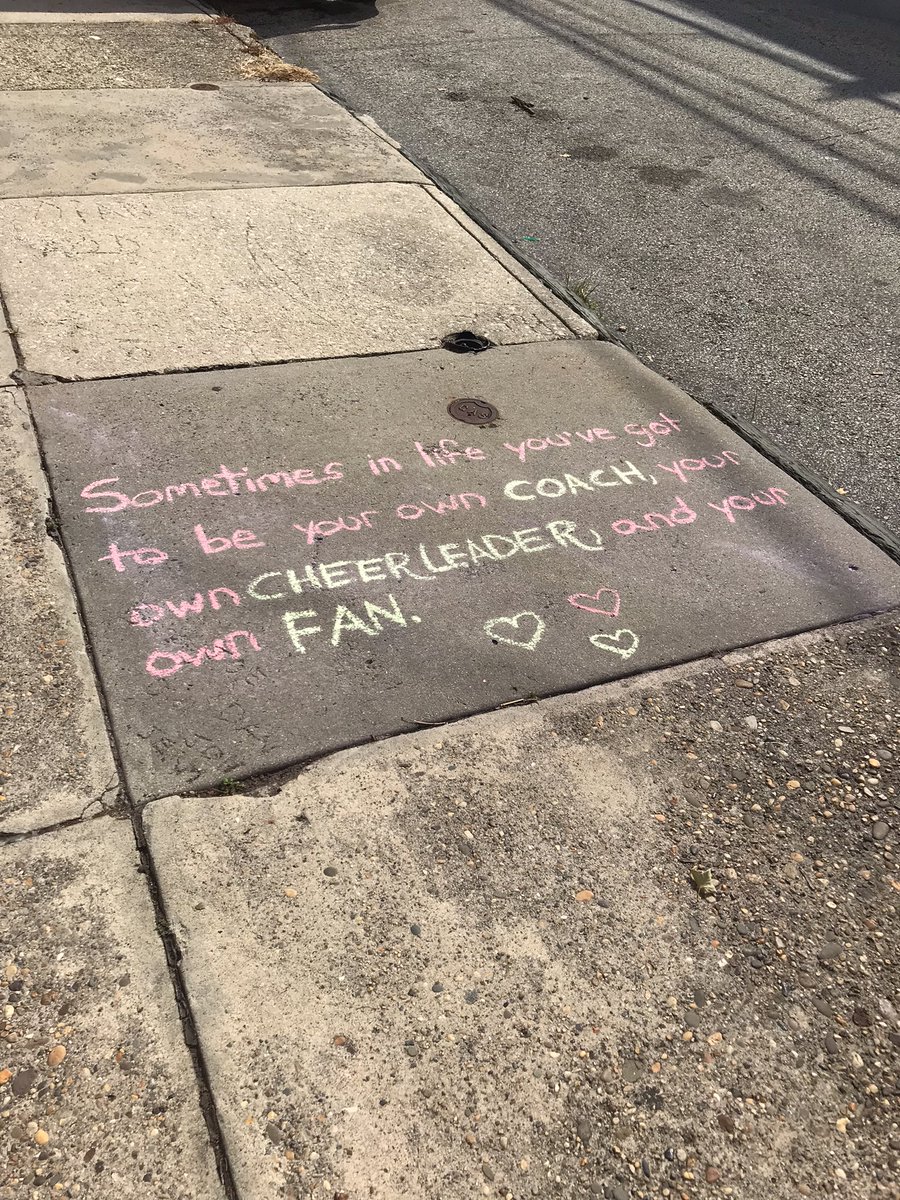 Sometimes in life you've got
to be your own COACH, your
own CHEERLEADER, and your
own FAN.